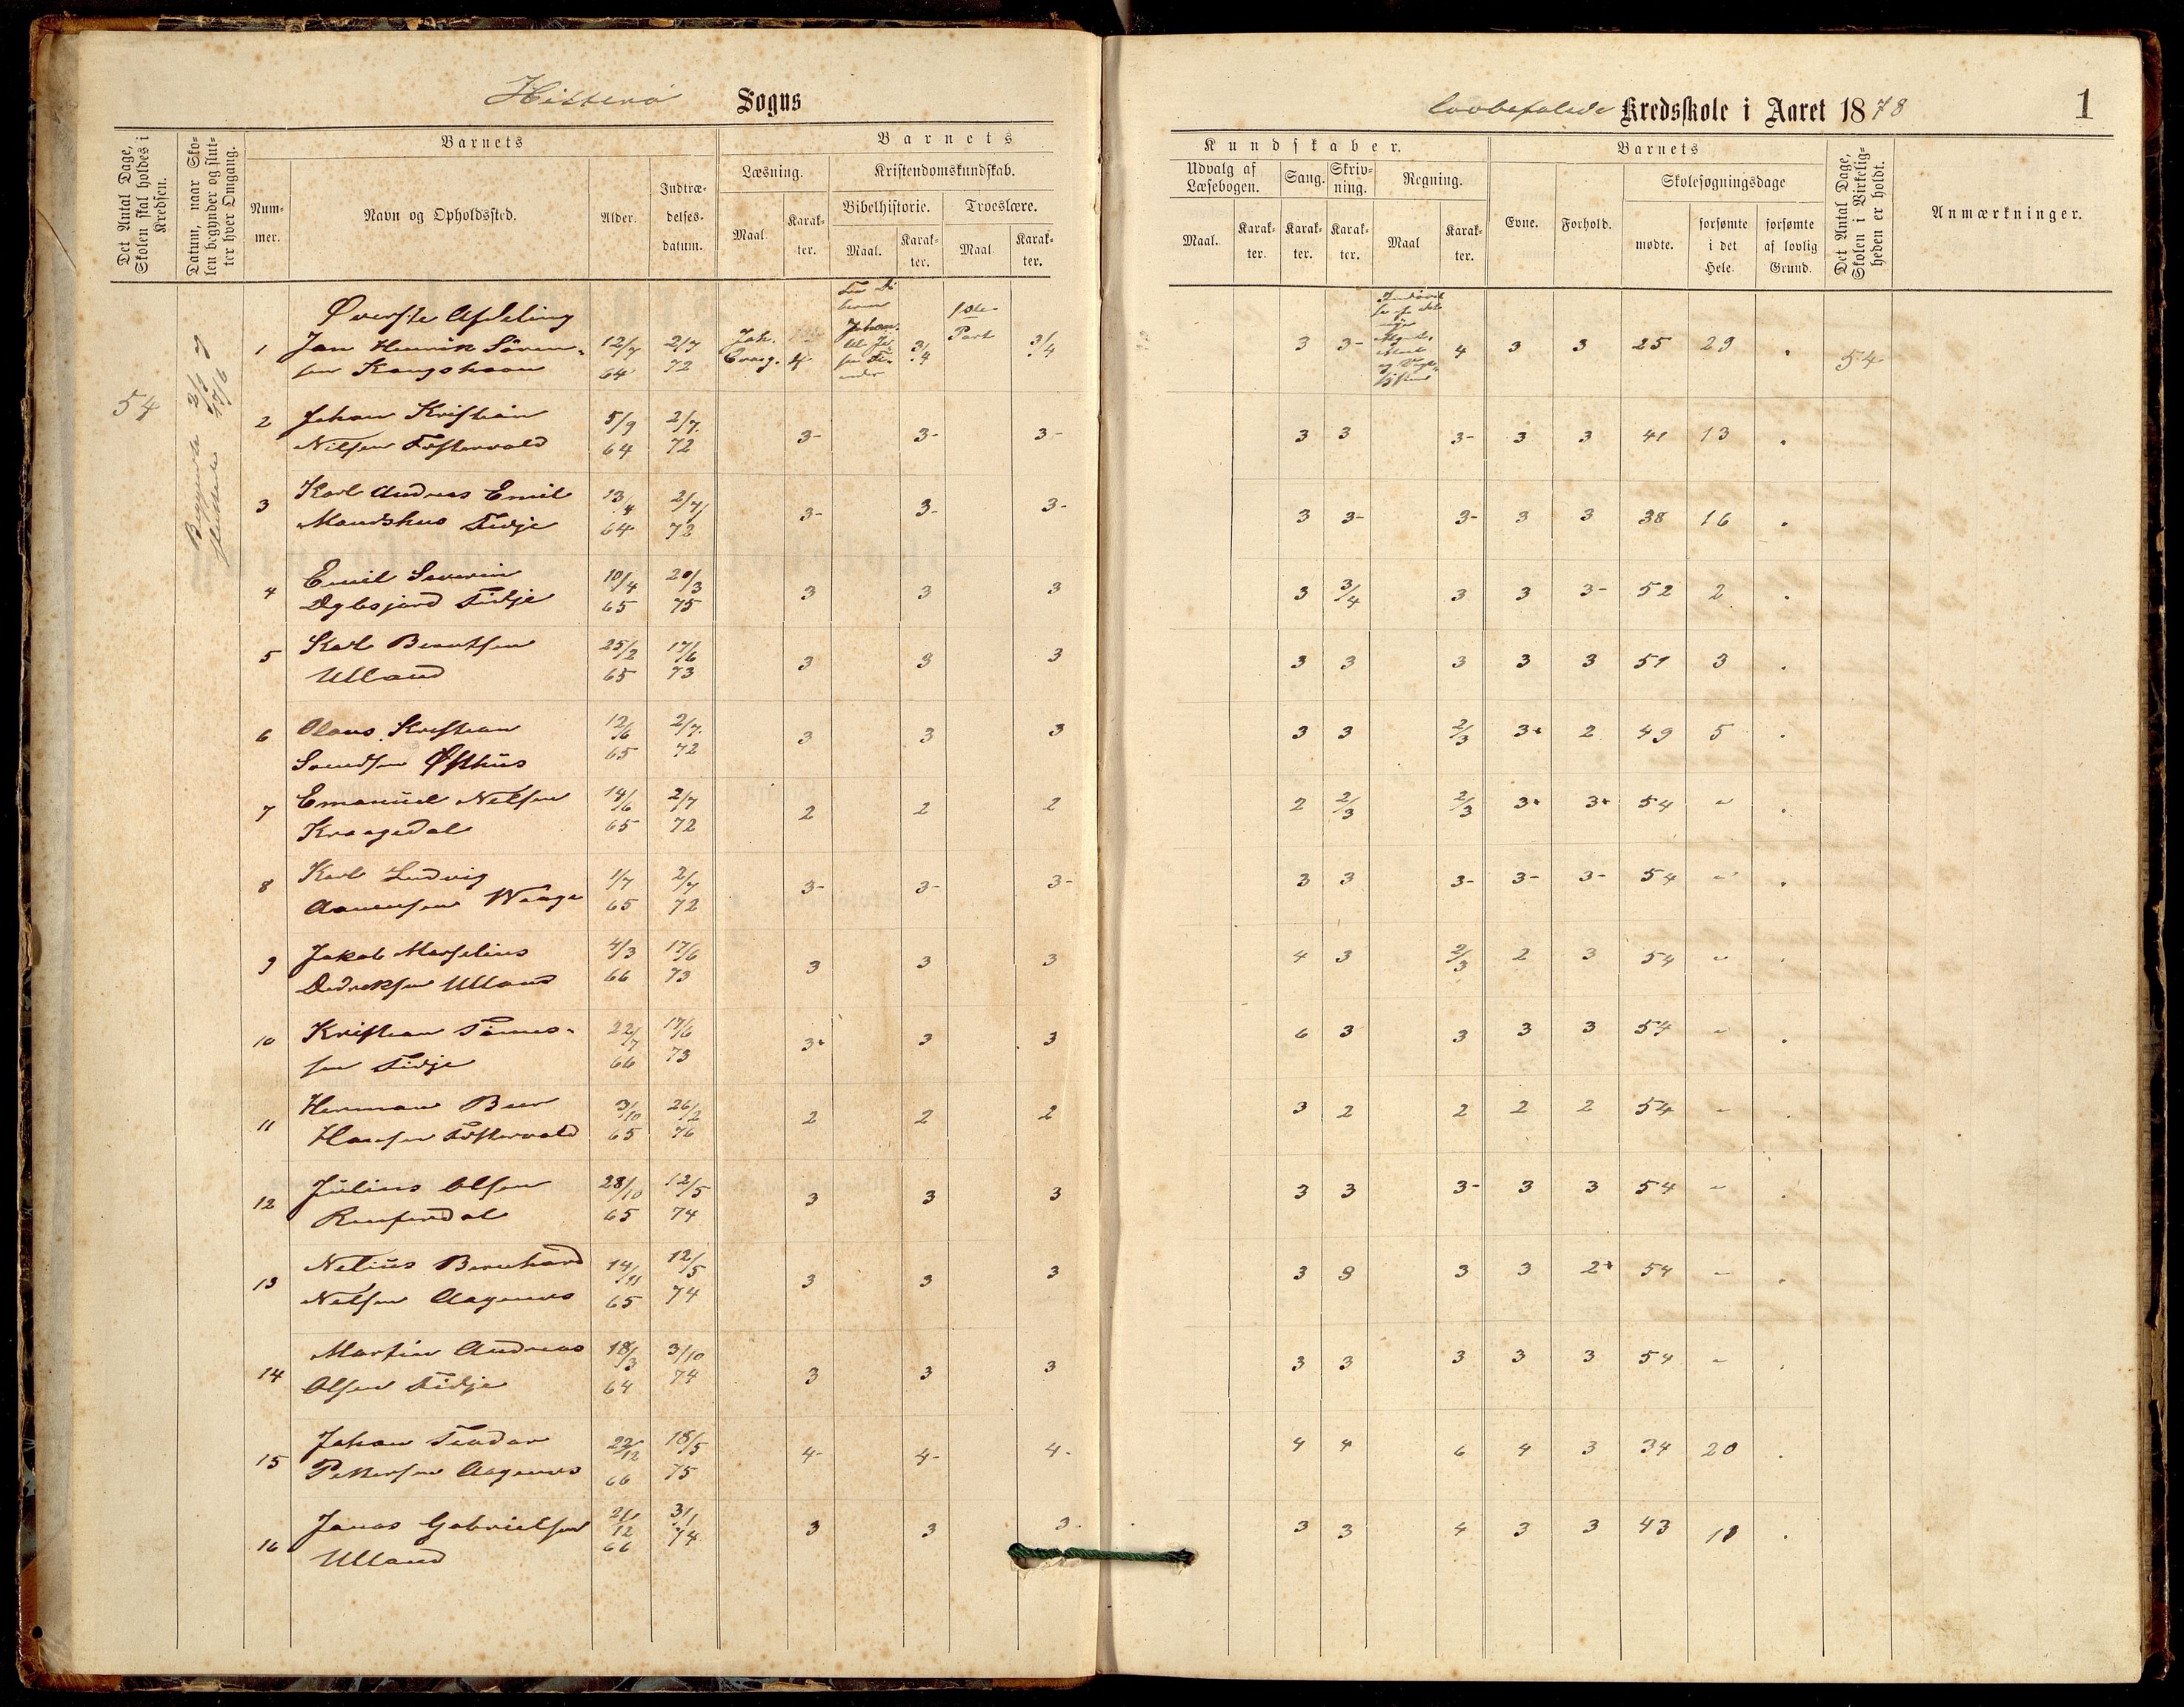 Hitterø Sogns
lovbefalede Kredsskole i Aaret 1878
1
Det Antal Dage, Skolen skal holdes i Kredsen.
Datum, naar Skolen begynder og slutter hver Omgang.
Barnets
Nummer.
Navn og Opholdssted.
Alder.
Indtrædelses-datum.
Barnets
Læsning.
Maal.
Karakter.
Kristendomskundskab.
Bibelhistorie.
Maal.
Karakter.
Troeslære.
Maal
Karakter.
Kundskaber.
Udvalg af Læsebogen.
Maal.
Karakter.
Sang.
Karakter.
Skrivning.
Karakter.
Regning.
Maal
Karakter.
Barnets
Evne.
Forhold.
Skolesøgningsdage
mødte.
forsømte i det Hele.
forsømte af lovlig Grund.
Det Antal Dage, Skolen i Virkeligheden er holdt.
Anmærkninger.
54
Begyndte 2/1
sluttede 17/6
Øverste Afdeling
1 Jan Henrik Sören-
sen 12/7 64 2/7 72 Joh. Evang. 4 3/4 1ste Part 3/4 3 3- 4 3 3 25 29 . 54
2 Johan Kristian
Nilsen Fostervold 5/9 64 2/7 72 3- 3- 3- 3 3 3- 3 3 41 13 .
3 Karl Andreas Emil
Mandshus Fidje 13/4 64 2/7 72 3- 3- 3- 3 3- 3- 3 3 38 16 .
4 Emil Severin
Fidje 10/4 65 20/3 75 3 3 3 3 3/4 3 3 3- 52 2 .
5 Karl Berntsen
Ulland 25/2 65 17/6 73 3 3 3 3 3 3 3 3 51 3 .
6 Olaus Kristian
Svendsen Østhus 12/6 65 2/7 72 3 3 3 3 3 2/3 3+ 2 49 5 .
7 Emanuel Nilsen
Kraagedal 14/6 65 2/7 72 2 2 2 2 2/3 2/3 3+ 3+ 54 " .
8 Karl Ludvig
Aanensen Waage 1/7 65 2/7 72 3- 3- 3- 3 3 3- 3- 3- 54 " .
9 Jakob Marselius
Didreksen Ulland 4/3 66 17/6 73 3 3 3 4 3 2/3 2 3 54 " .
10 Kristian Tönnes-
sen Fidje 22/7 66 17/6 73 3+ 3 3 6 3 3 3 3 54 " .
11 Herman Beer
Hansen Fostervold 3/10 65 26/2 76 2 2 2 3 2 2 2 2 54 " .
12 Julius Olsen
28/10 65 12/5 74 3 3 3 3 3 3- 3 3 54 " .
13 Nelius Bernhard
Nilsen Aagenes 14/11 65 12/5 74 3 3 3 3 3 3 3 2+ 54 " .
14 Martin Andreas
Olsen Fidje 18/3 64 3/10 74 3 3 3 3 3 3 3 3 54 " .
15 Johan Teodor
Pettersen Aagenes 22/12 66 18/5 75 4- 4- 4- 4 4 6 4 3 34 20 .
16 Jonas Gabrielsen
Ulland 21/12 66 3/1 74 3 3 3 3 3 4 3 3 43 11 .